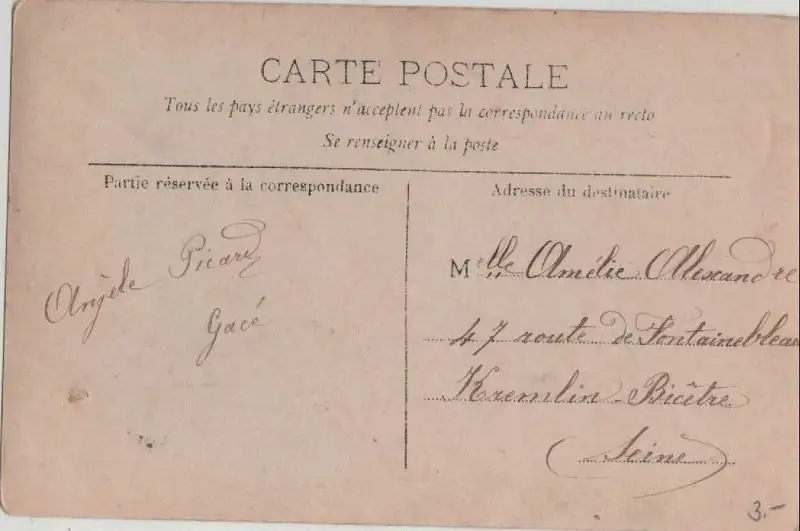 CARTE POSTALE
Tous les pays étrangers n'acceptent pas la correspondance au recto
Se renseigner à la poste
Partie réservée à la correspondance
Anjèle Picard
Gacé
Adresse du destinataire
Melle Amélie Alexandre
47 route de Fontainebleau
Kremlin-Bicêtre
(Seine)
3.-